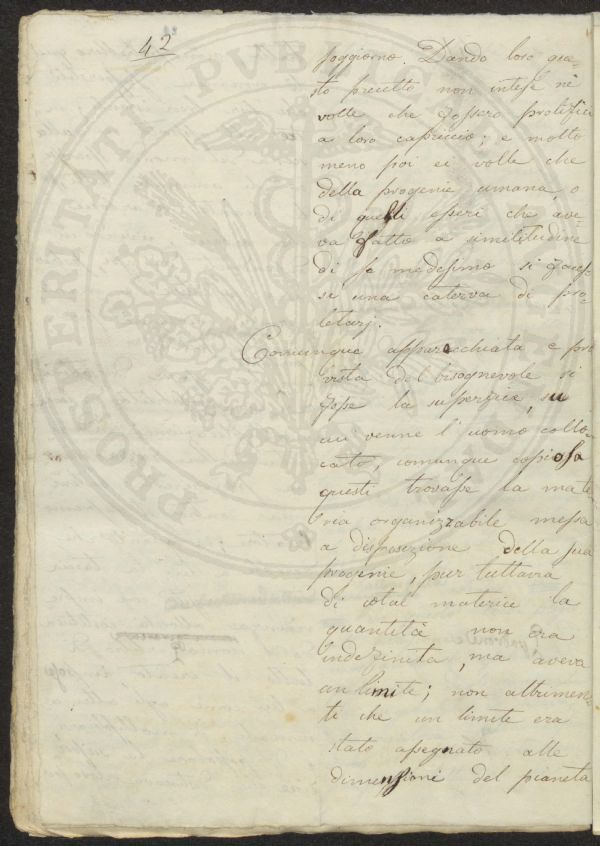 42
soggiorno. Dando loro que-
sto precetto non intese nè
volle che fossero prolifici
a loro capriccio; e molto
meno poi ei volle che
della progenie umana, o
di quelli esseri che ave-
va fatto a similitudine
di se medesimo si faces-
se una caterva di pro-
letarj.
Comunque apparecchiata e prov
vista del bisognevole si
fosse la superficie, su
cui venne l'uomo collo-
cato, comunque copiosa
questi trovasse la mate
ria organizzabile messa
a disposizione della sua
progenie, pur tuttavia
di cotal materia la
quantità non era
indefinita, ma aveva
un limite; non altrimen-
ti che un limite era
stato assegnato alle
dimensioni del pianeta
PROSPERITATI PUBLICAE